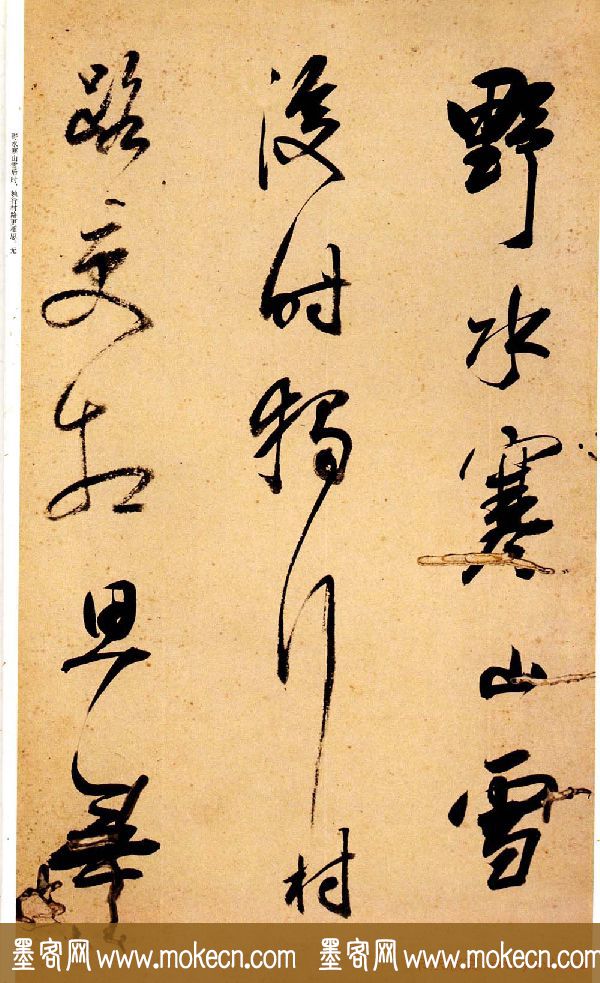 野水寒山雪
後時獨行村
路更相思無
野水寒山雪后时，独行村路更相思。无
墨客网 www.mokecn.com 墨客网 www.mokecn.com